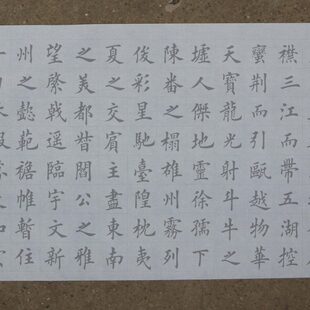 襟三江而帶五湖控
蠻荊而引甌越物華
天寶龍光射斗牛之
墟人傑地靈徐孺下
陳番之榻雄州霧列
俊彩星馳臺隍枕夷
夏之交賓主盡東南
之美都督閻公之雅
望棨戟遙臨宇文新
州之懿範襜帷暫住